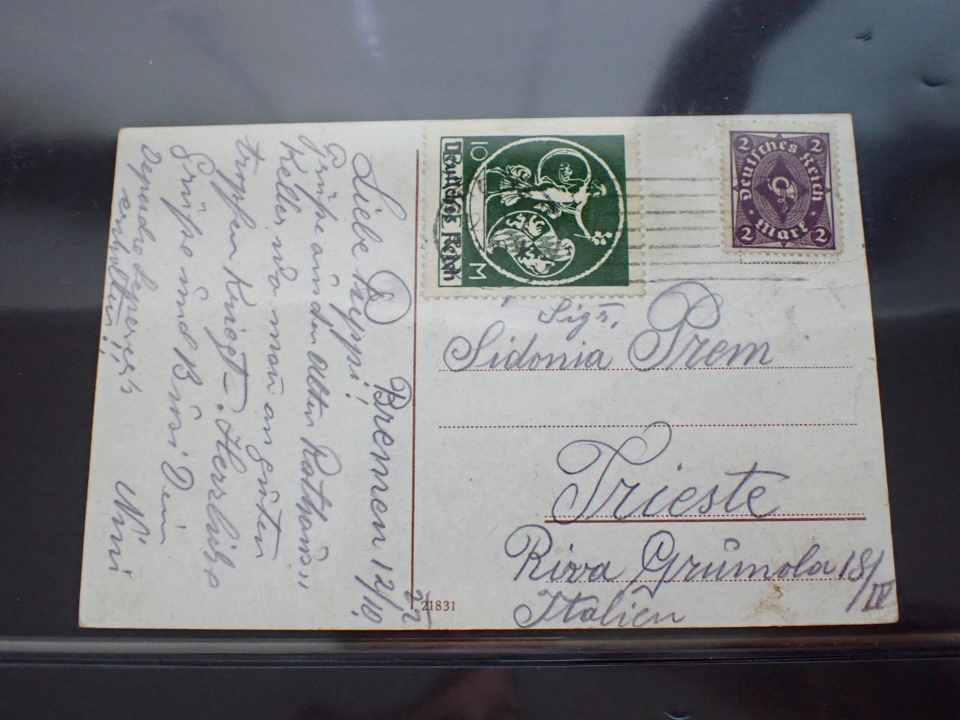 Bremen 12/10. 22
Liebe Peppi!
Grüße aus dem alten Rathaus
Keller, wo man an guten
tropfen kriegt. Herzliche
Grüße und B von Dein
Nini
erhalten!
10 M
Deutsches Reich
2 2
Deutsches Reich
Mark
2 2
Sigr.
Sidonia Prem
Trieste
Riva Grumola 18/IV
Italien
21831